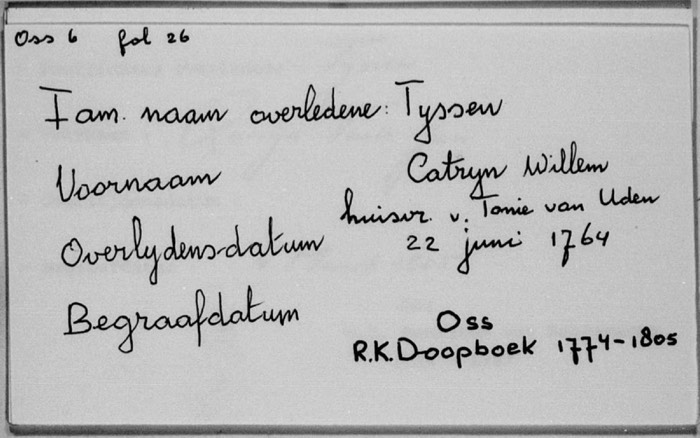 Oss 6 fol 26
Fam. naam overledene: Tyssen
Voornaam Catryn Willem
huisvr. v. Tonie van Uden
Overlydensdatum 22 juni 1764
Begraafdatum
Oss
R.K. Doopboek 1774-1805